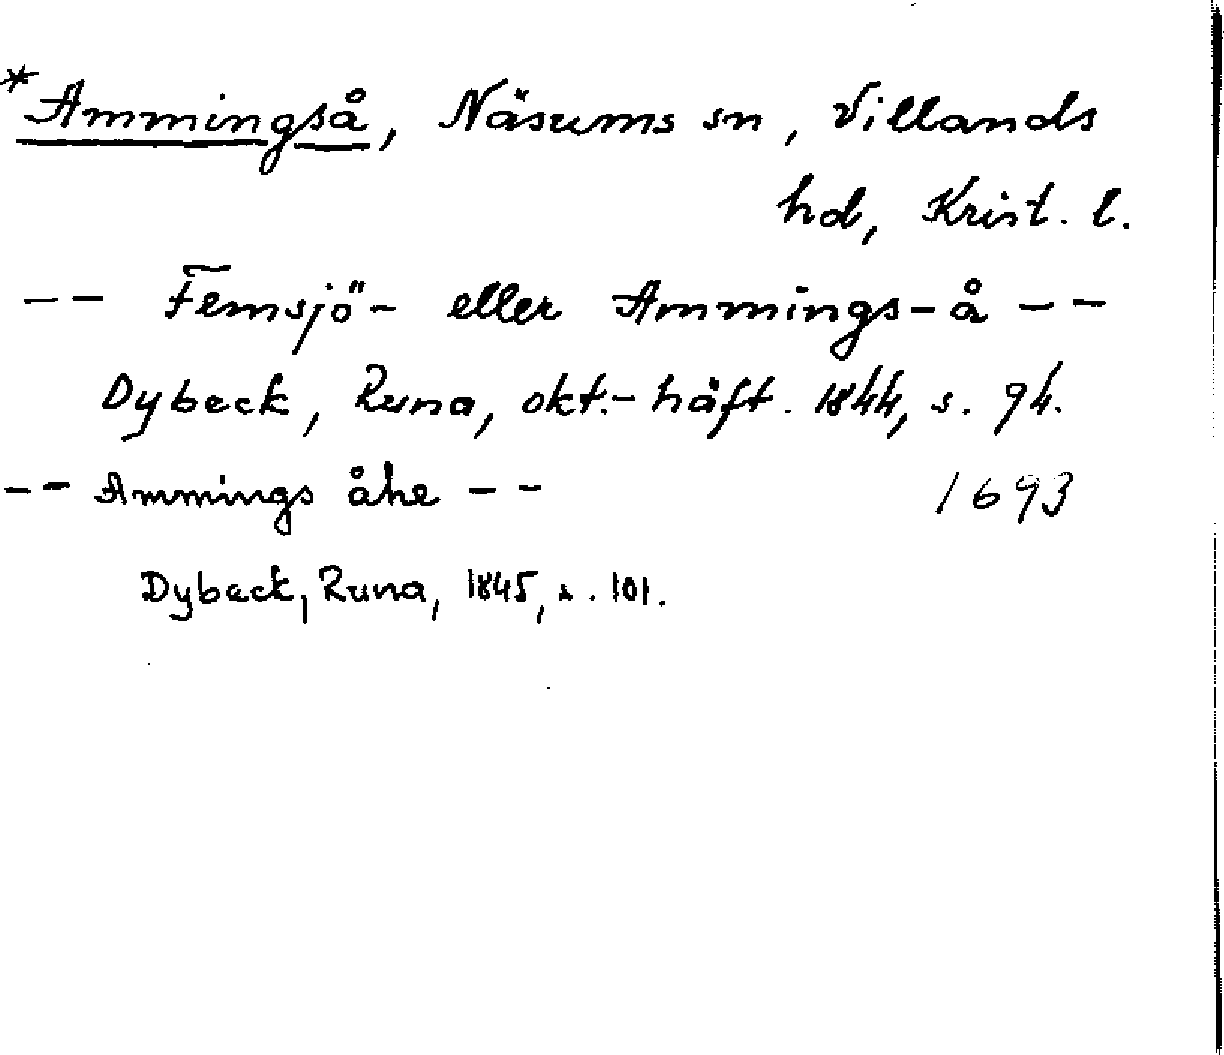 *Ammingså, Näsums sn, Villands
hd, Krist. l.
-- Femsjö- eller Ammings-å --
Dybeck, Runa, okt.-häft. 1844, s. 94.
-- Ammings åhe -- 1693
Dybeck, Runa, 1845, s. 101.